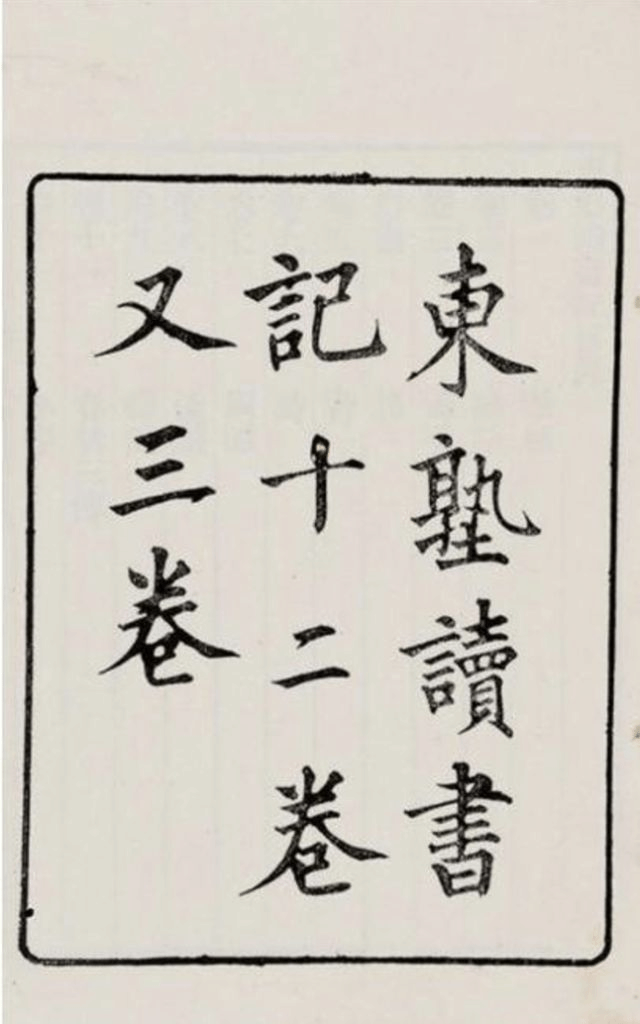 東塾讀書
記十二卷
又三卷